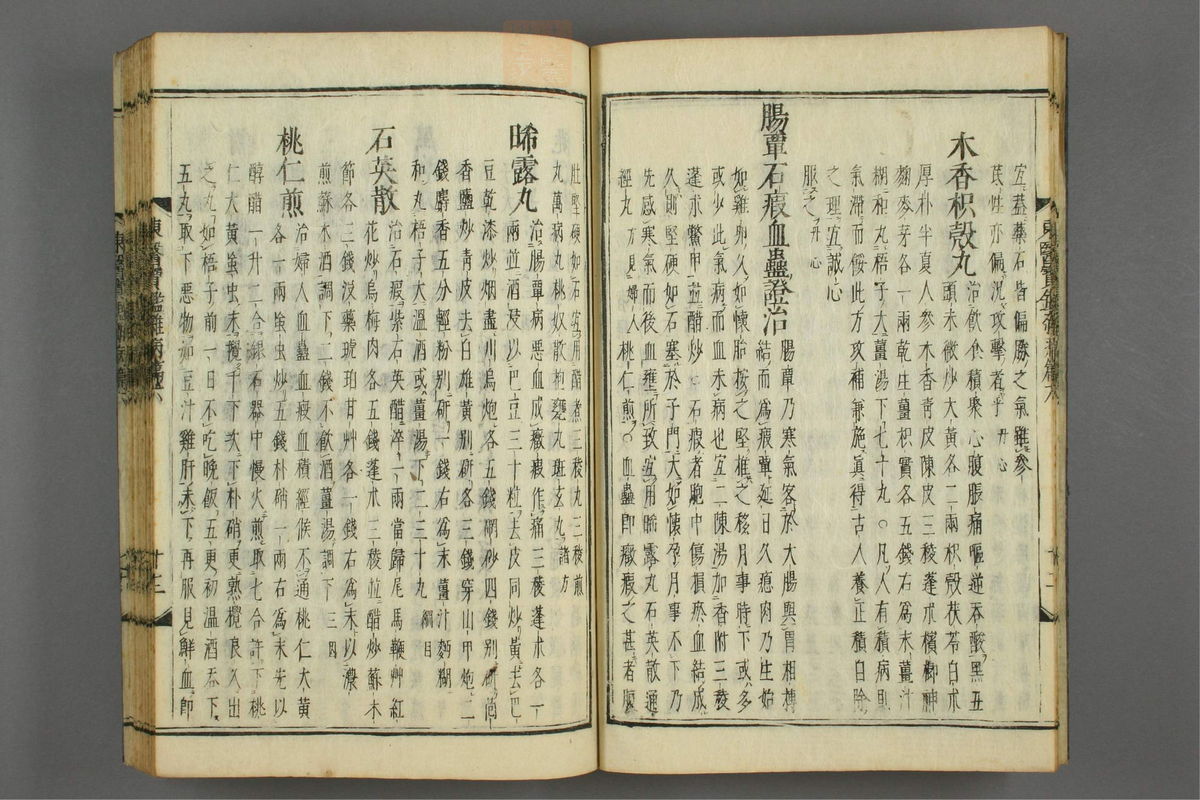 宜益藥石皆偏勝之氣雖參
芪性亦偏況攻擊者乎 丹心
木香枳殼丸 治飮食積聚心腹脹痛嘔逆吞酸黑丑
頭末微炒大黃各二兩枳殼茯苓白朮
厚朴半夏人參木香靑皮陳皮三稜蓬朮檳榔神
麴麥芽各一兩乾生薑枳實各五錢右爲末薑汁
糊和丸梧子大薑湯下七十丸○凡人有積病則
氣滯而餒此方攻補兼施眞得古人養正積自除
之理宜誠心
服之 丹心
腸覃石瘕血蠱證治 腸覃乃寒氣客於大腸與胃相搏
結而爲瘕覃延日久瘜肉乃生始
如雞卵久如懷胎按之堅推之移月事時下或多
或少此氣病而血未病也宜二陳湯加香附三稜
蓬朮鱉甲並醋炒○石瘕者胞中傷損瘀血結成
久則堅硬如石塞於子門大如懷孕月事不下乃
先感寒氣而後血壅所致宜用晞露丸石英散通
經丸 方見婦人 桃仁煎○血蠱卽癥瘕之甚者腹
肚堅硬如石宜用醋煮三稜丸三稜煎
丸萬病丸桃奴 丸斑玄丸 諸方
晞露丸 治腸覃病惡血成癥瘕作痛三稜蓬朮各一
兩並酒浸以巴豆三十粒去皮同炒黃去巴
豆乾漆炒烟盡川烏炮各五錢硇砂四錢別硏茴
香鹽炒靑皮去白雄黃別硏各三錢穿山甲炮二
錢麝香五分輕粉別硏一錢右爲末薑汁麪糊
和丸梧子大溫酒或薑湯下二三十丸 綱目
石英散 治石瘕紫石英醋淬一兩當歸尾馬鞭艸紅
花炒烏梅肉各五錢蓬朮三稜並醋炒蘇木
節各三錢沒藥琥珀甘艸各一錢右爲末以濃
煎蘇木酒調下二錢不飮酒薑湯調下 三四
桃仁煎 治婦人血蠱血瘕血積經候不通桃仁大黃
各一兩䖟虫炒五錢朴硝一兩右爲末先以
醇醋一升二合銀石器中慢火煎取七合許下桃
仁大黃䖟虫末攪千下次下朴硝更熟攪良久出
之丸如梧子前一日不吃晚飯五更初溫酒吞下
五丸取下惡物如豆汁雞肝未下再服見鮮血卽
東醫寶鑑雜病篇六
十二